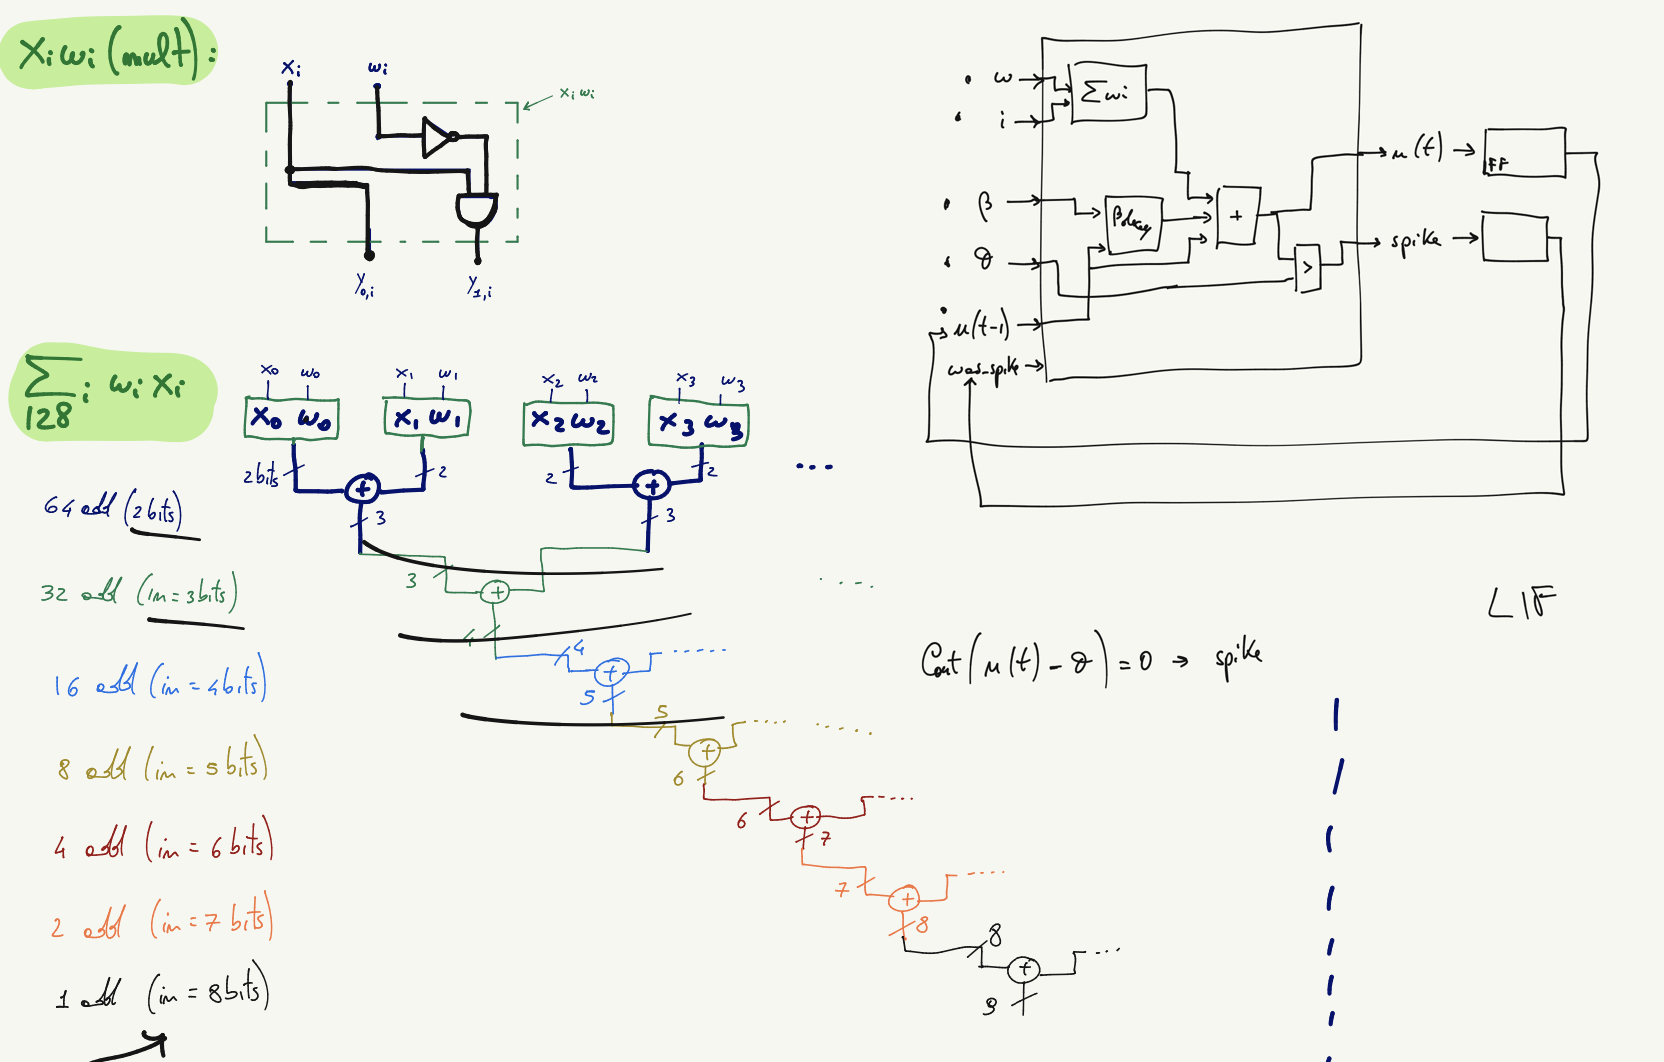 xᵢwᵢ (mult) :
xᵢ wᵢ
xᵢ wᵢ
y₀,ᵢ y₁,ᵢ
∑ᵢ wᵢ xᵢ
128
x₀ w₀ x₁ w₁ x₂ w₂ x₃ w₃
x₀ w₀ x₁ w₁ x₂ w₂ x₃ w₃
2bits 2 2 2 ...
+ +
64 add (2 bits)
3 3
32 add (in = 3bits)
3 + ....
4
16 add (in = 4bits)
4 + ......
5
8 add (in = 5 bits)
5 + .... .....
6
4 add (in = 6 bits)
6 + .....
7
2 add (in = 7 bits)
7 + .....
8
1 add (in = 8bits)
8 + .....
9
• w
• i
∑wi
• β
β decay
+
• θ
>
• u(t-1)
was_spike
u(t)
FF
spike
LIF
Cout(u(t) - θ) = 0 → spike